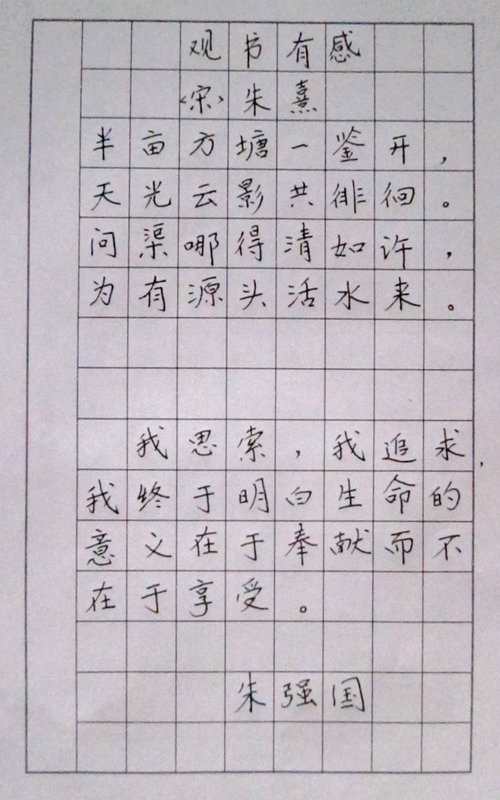 观书有感
<宋>朱熹
半亩方塘一鉴开，
天光云影共徘徊。
问渠哪得清如许，
为有源头活水来。
我思索，我追求，
我终于明白生命的
意义在于奉献而不
在于享受。
朱强国